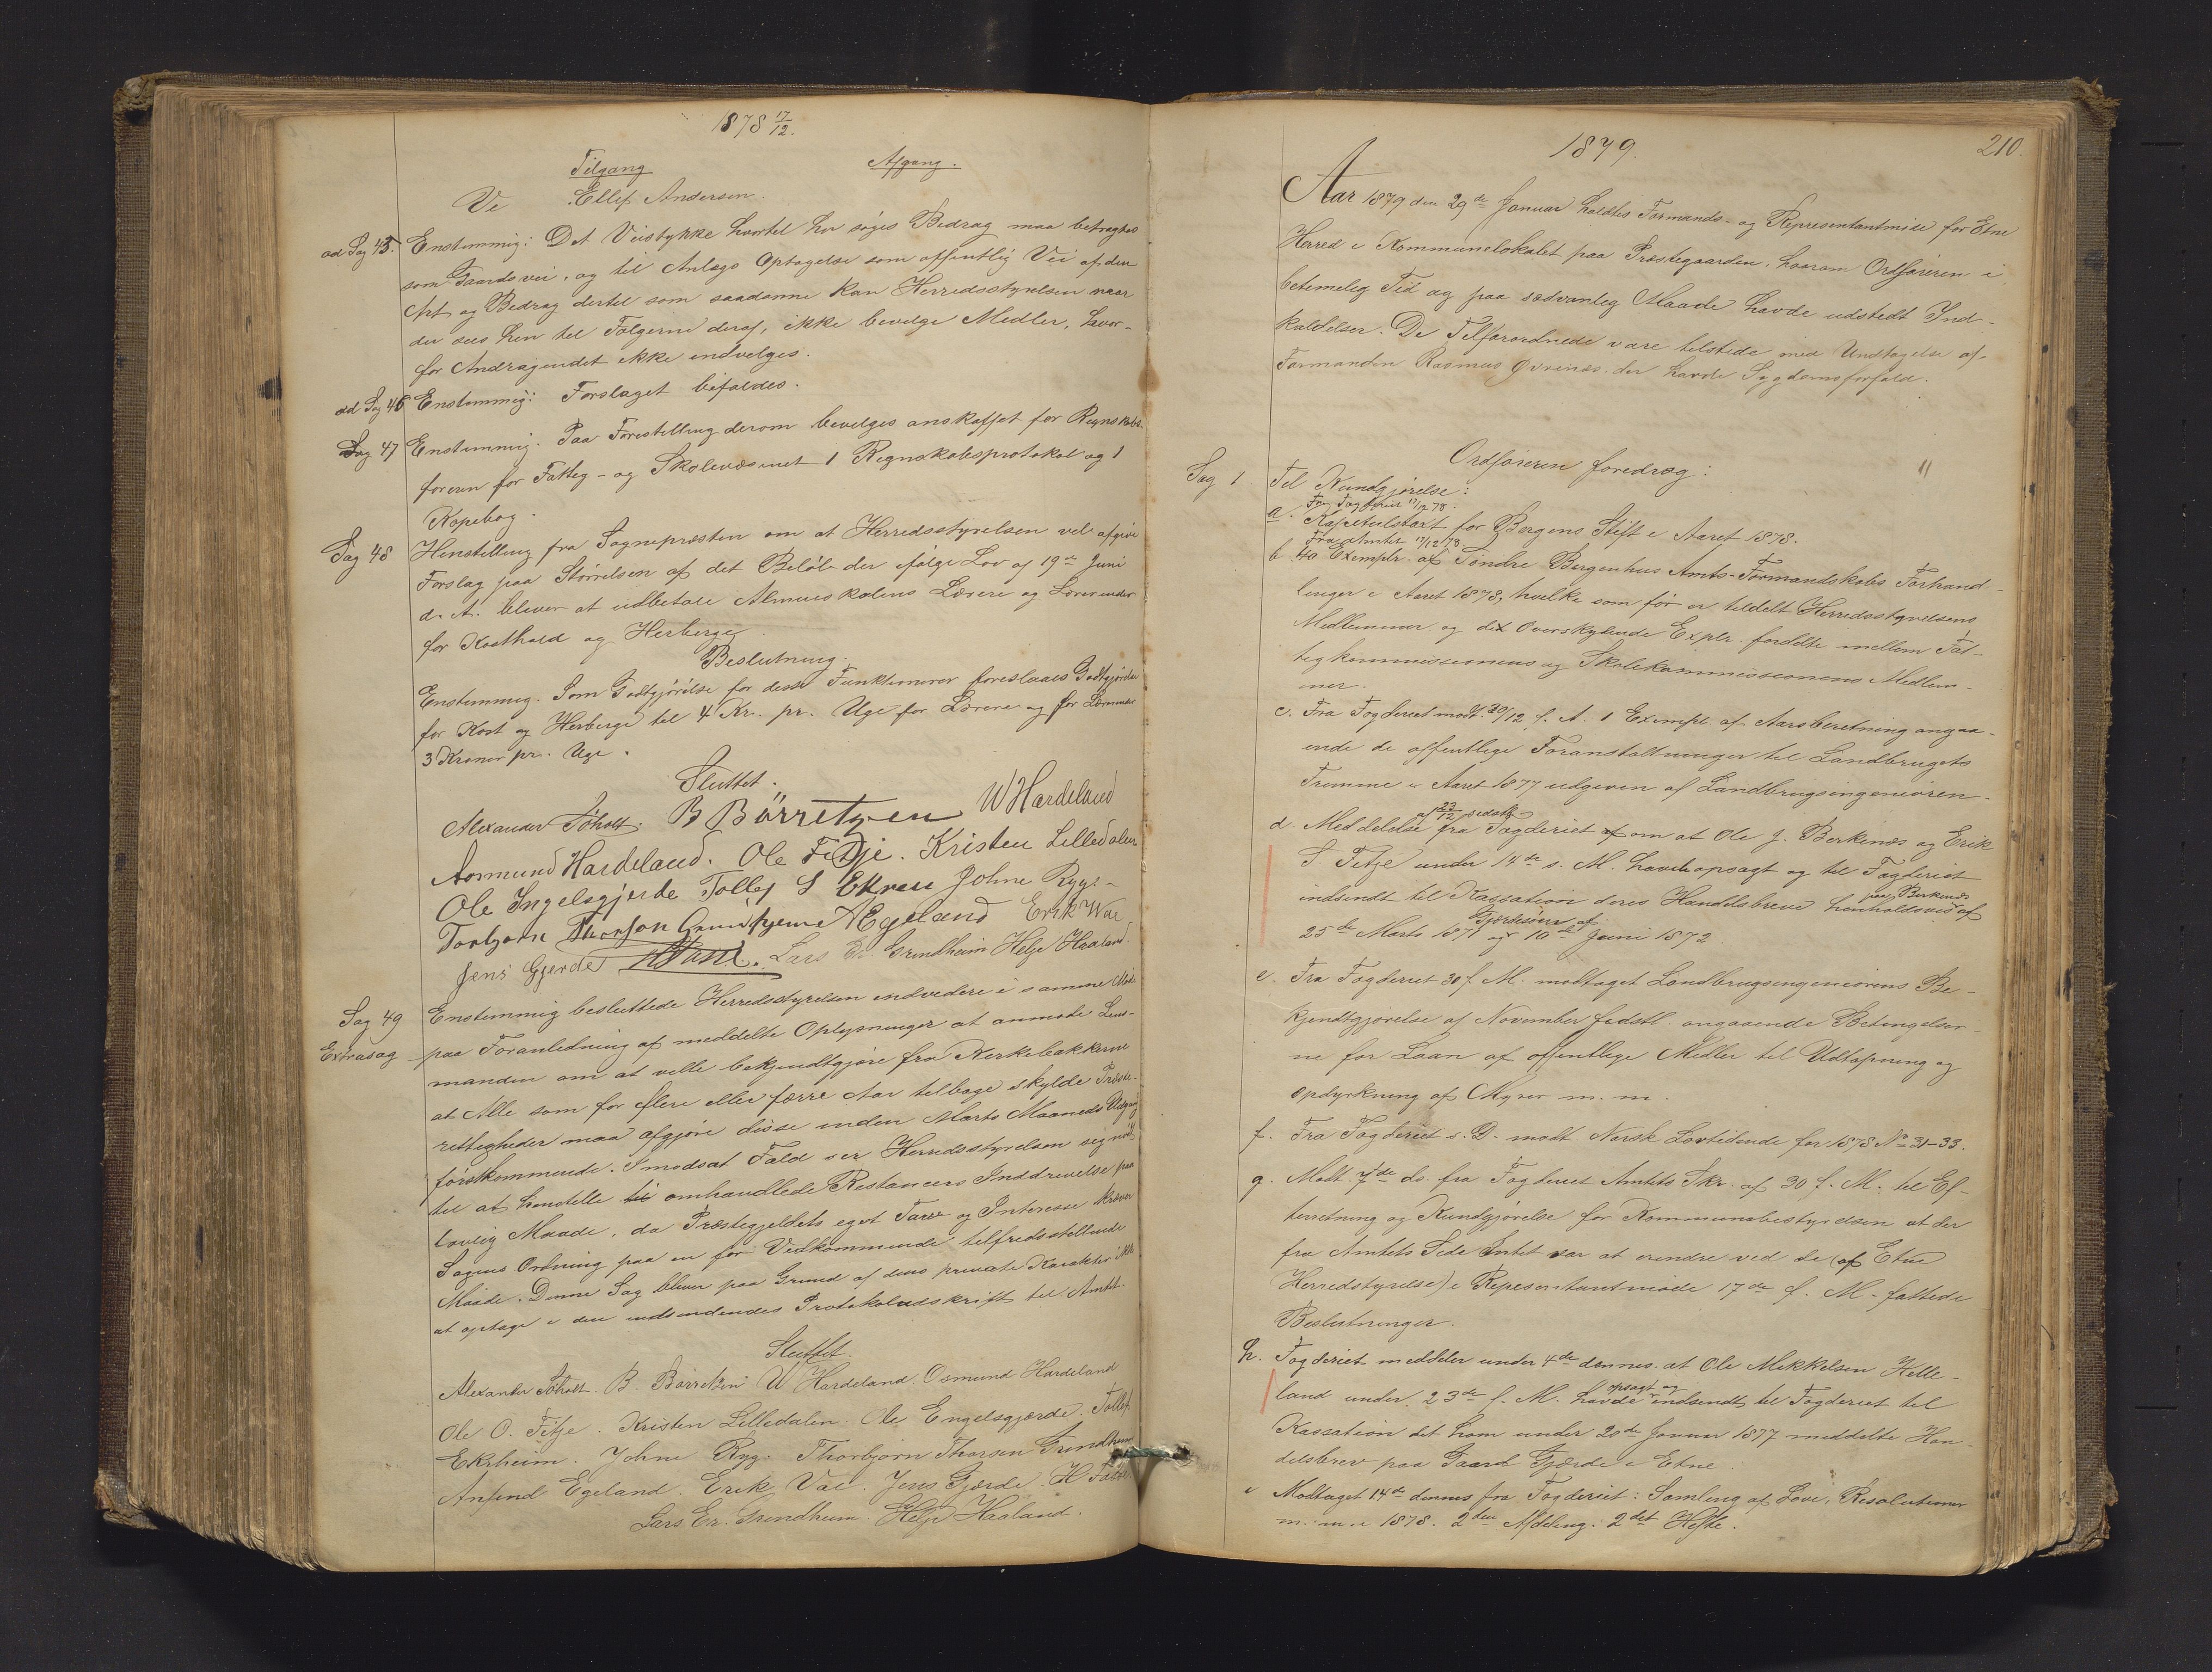 1878 17/12.
Tilgang Afgang.
Ve Ellef Andersen.
ad Sag 45. Enstemmig: Det Veistykke hvortil her søges Bedrag maa betragtes
som Gaardsvei, og til Anlægs Optagelse som offentlig Vei af den
Art og Bedrag dertil som saadanne kan Herredsstyrelsen naar
der sees hen til Følgerne deraf, ikke bevilge Midler, hvor-
for Andragendet ikke indvilges.
ad Sag 46 Enstemmig: Forslaget bifaldes.
Sag 47 Enstemmig. Paa Forestilling derom bevilges anskaffet for Regnskabs-
føreren for Fattig- og Skolevæsenet 1 Regnskabsprotokol og 1
Kopibog.
Sag 48 Henstilling fra Sognepræsten om at Herredsstyrelsen vil afgive
Forslag paa Størrelsen af det Beløb der ifølge Lov af 19de Juni
d. A. bliver at udbetale Almueskolens Lærere og Lærerinder
for Kosthold og Herberge.
Beslutning.
Enstemmig. Som Godtgjørelse for disse Funktionærer foreslaaes Godtgjørelse
for Kost og Herberge til 4 Kr. pr. Uge for Lærere og for Lærerinder
3 Kroner pr. Uge.
Sluttet.
Alexander Søholt. B Börretzen W Hardeland
Aasmund Hardeland. Ole Fitje. Kristen Lilledalen
Ole Ingelsgjerde Tollef S Ekren Johne Ryge-
Torbjørn Thorson Grindhjeme A Egeland Erik Wae
Jens Gjerde Lars Er. Grindheim Helje Haaland.
Sag 49 Enstemmig besluttede Herredsstyrelsen endvidere i samme Møde
Extrasag paa Foranledning af meddelte Oplysninger at anmode Lens-
manden om at ville bekjendtgjøre fra Kirkebakkerne
at Alle som for flere eller færre Aar tilbage skylde Præste-
rettigheder maa afgjøre disse inden Marts Maaneds Udgang
førstkommende. I modsat Fald ser Herredsstyrelsen sig nødt
til at henstille til omhandlede Restancers Inddrivelse paa
lovlig Maade, da Præstegjeldets eget Tarv og Interesse kræver
Sagens Ordning paa en for Vedkommende tilfredsstillende
Maade. Denne Sag bliver paa Grund af dens private Karakter ikke
at optage i den indsendendes Protokoludskrift til Amtet.
Sluttet.
Alexander Søholt. B. Børretzen W Hardeland Osmund Hardeland
Ole O. Fitje. Kristen Lilledalen. Ole Engelsgjerde. Tollef
Ekrheim. Johne Ryg. Thorbjørn Thorsen Grindheim
Anfind Egeland. Erik Vae. Jens Gjerde. H
Lars Er. Grindheim. Helje Haaland.
1879. 210.
Aar 1879 den 29de Januar holdtes Formands- og Representantmøde for Etne
Herred i Kommunelokalet paa Præstegaarden, hvorom Ordføreren i
betimelig Tid og paa sædvanlig Maade havde udstedt Ind-
kaldelser. De Tilforordnede vare tilstede med Undtagelse af
Formanden Rasmus Øvrenæs der havde Sygdomsforfald.
Ordføreren foredrog:
Sag 1 Til Kundgjørelse:
Fra Fogderiet 17/12 78.
a. Kapitulstaxt for Bergens Stift i Aaret 1878.
Fra Amtet 17/12 78.
b. 40 Exemplr. af Søndre Bergenhus Amts-Formandskabs Forhand-
linger i Aaret 1878, hvilke som før er tildelt Herredsstyrelsens
Medlemmer og de overskydende Explr. fordelte mellem Fat-
tigkommissionens og Skolekommissionens Medlem-
mer.
c. Fra Fogderiet modt. 20/12 f. A. 1 Exempl. af Aarsberetning angaa-
ende de offentlige Foranstaltninger til Landbrugets
Fremme i Aaret 1877 udgiven af Landbrugsingeniøren.
af 23/12 sidstl.
d. Meddelelse fra Fogderiet om at Ole J. Berkenæs og Erik
S. Fitje under 14de s. M. havde opsagt og til Fogderiet
indsendt til Kassation deres Handelsbreve henholdsvis paa Berkenæs af
25de Marts 1871 og Gjerdesøen af 10de Juni 1872
e. Fra Fogderiet 30 f. M. modtaget Landbrugsingeniørens Be-
kjendtgjørelse af November sidstl. angaaende Betingelser-
ne for Laan af offentlige Midler til Udtapning og
opdyrkning af Myrer m. m.
f. Fra Fogderiet s. D. modt. Norsk Lovtidende for 1878 No 31-33.
g. Modt. 7de ds. fra Fogderiet Amtets Skr. af 30 f. M. til Ef-
terretning og Kundgjørelse for Kommunebestyrelsen at der
fra Amtets Side Intet var at erindre ved de (af Etne
Herredsstyrelse) i Repesentantmøde 17de f. M. fattede
Beslutninger.
h. Fogderiet meddeler under 4de dennes. at Ole Mikkelsen Helle-
land under 23de f. M. havde opsagt og indsendt til Fogderiet til
Kassation det ham under 20de Januar 1877 meddelte Han-
delsbrev paa Gaard Gjerde i Etne.
i Modtaget 14de dennes fra Fogderiet: Samling af Love, Resolutioner
m. m. i 1878. 2den Afdeling. 2det Hefte.